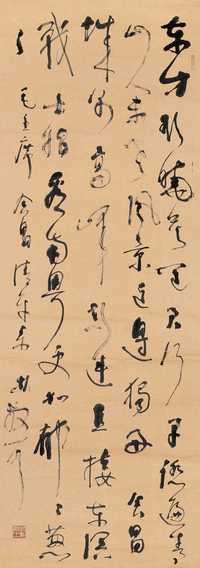 东方欲晓莫道君行早踏遍青
山人未老风景这边独好会昌
城外高峰颠连直接东溟
战士指看南粤更加郁〻葱
〻 毛主席会昌清平乐